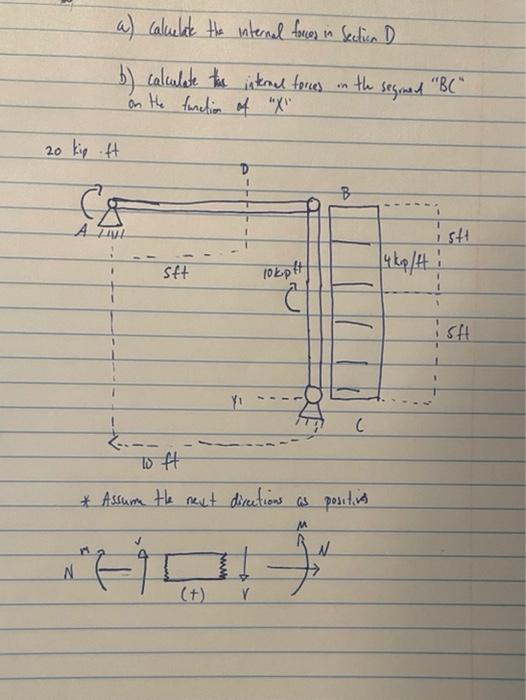 a) calculate the internal forces in Section D
b) calculate the internal forces in the segment "BC"
on the function of "X"
20 kip . ft
D
B
A
5ft
4 kip/ft
5ft
10 kip ft
5ft
X1
C
10 ft
* Assume the next directions as positives
M
m
V
N
N
(+)
V